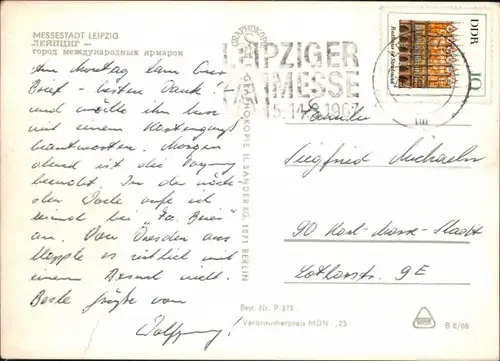 MESSESTADT LEIPZIG
ЛЕЙПЦИГ —
город международных ярмарок
Am Montag kam Euer
Brief – besten Dank!
und möchte ihn kurz
mit einem Kartengruß
beantworten. Morgen
abend ist die Tagung
beendet. In der näch-
sten Woche rufe ich
einmal bei
an. Von Dresden aus
klappte es zeitlich mit
einem Besuch nicht.
Beste Grüße von
Wolfgang!
GRAPHOKOPIE H. SANDER KG, 1071 BERLIN
LEIPZIGER
MESSE
1967
DDR
10
Familie
Siegfried Michaelis
90 Karl-Marx-Stadt
Lotharstr. 9E
Best.-Nr. P 379
Verbraucherpreis MDN -,25
B 6/66